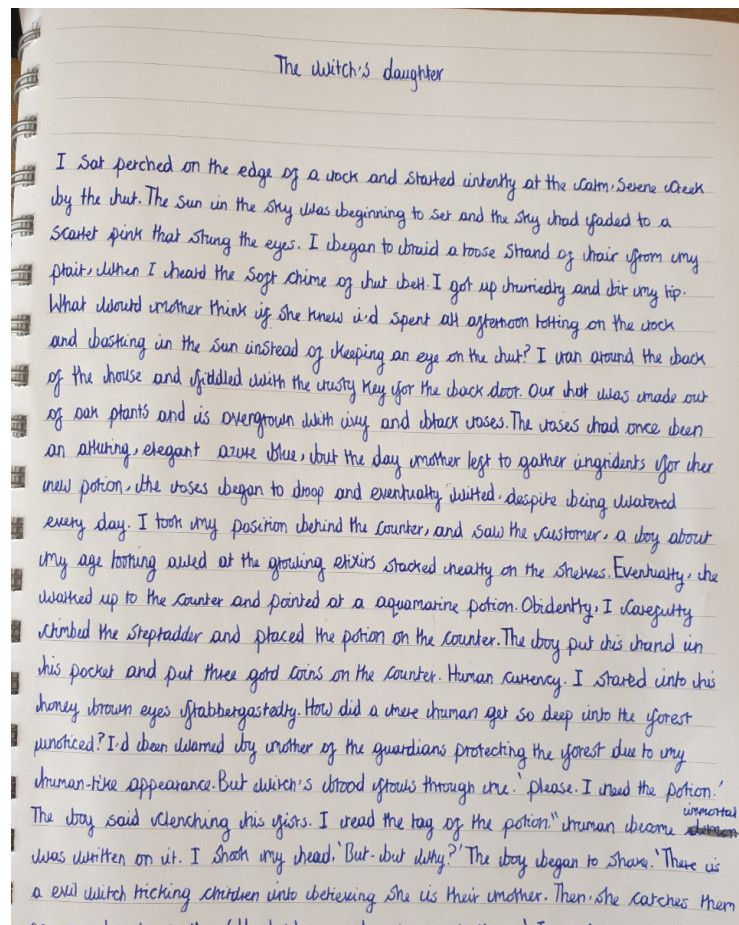 The witch's daughter
I sat perched on the edge of a rock and started intently at the calm, serene creek
by the hut. The sun in the sky was beginning to set and the sky had faded to a
scarlet pink that stung the eyes. I began to braid a loose strand of hair from my
plait, when I heard the soft chime of hut bell. I got up hurriedly and bit my lip.
What would mother think if she knew i'd spent all afternoon lolling on the rock
and basking in the sun instead of keeping an eye on the hut? I ran around the back
of the house and fiddled with the rusty key for the back door. Our hut was made out
of oak plants and is overgrown with ivy and black roses. The roses had once been
an alluring, elegant azure blue, but the day mother left to gather ingridents for her
new potion, the roses began to droop and eventually wilted, despite being watered
every day. I took my position behind the counter, and saw the customer, a boy about
my age looking awed at the glowing elixirs stacked neatly on the shelves. Eventually, he
walked up to the counter and pointed at a aquamarine potion. Obidently, I carefully
climbed the stepladder and placed the potion on the counter. The boy put his hand in
his pocket and put three gold coins on the counter. Human currency. I stared into his
honey brown eyes flabbergastedly. How did a mere human get so deep into the forest
unoticed? I'd been warned by mother of the guardians protecting the forest due to my
human-like appearance. But witch's blood flows through me. 'please. I need the potion.'
The boy said clenching his fists. I read the tag of the potion." human become immortal
was written on it. I shook my head. 'But-but why?' The boy began to shake. 'There is
a evil witch tricking children into believing she is their mother. Then, she catches them